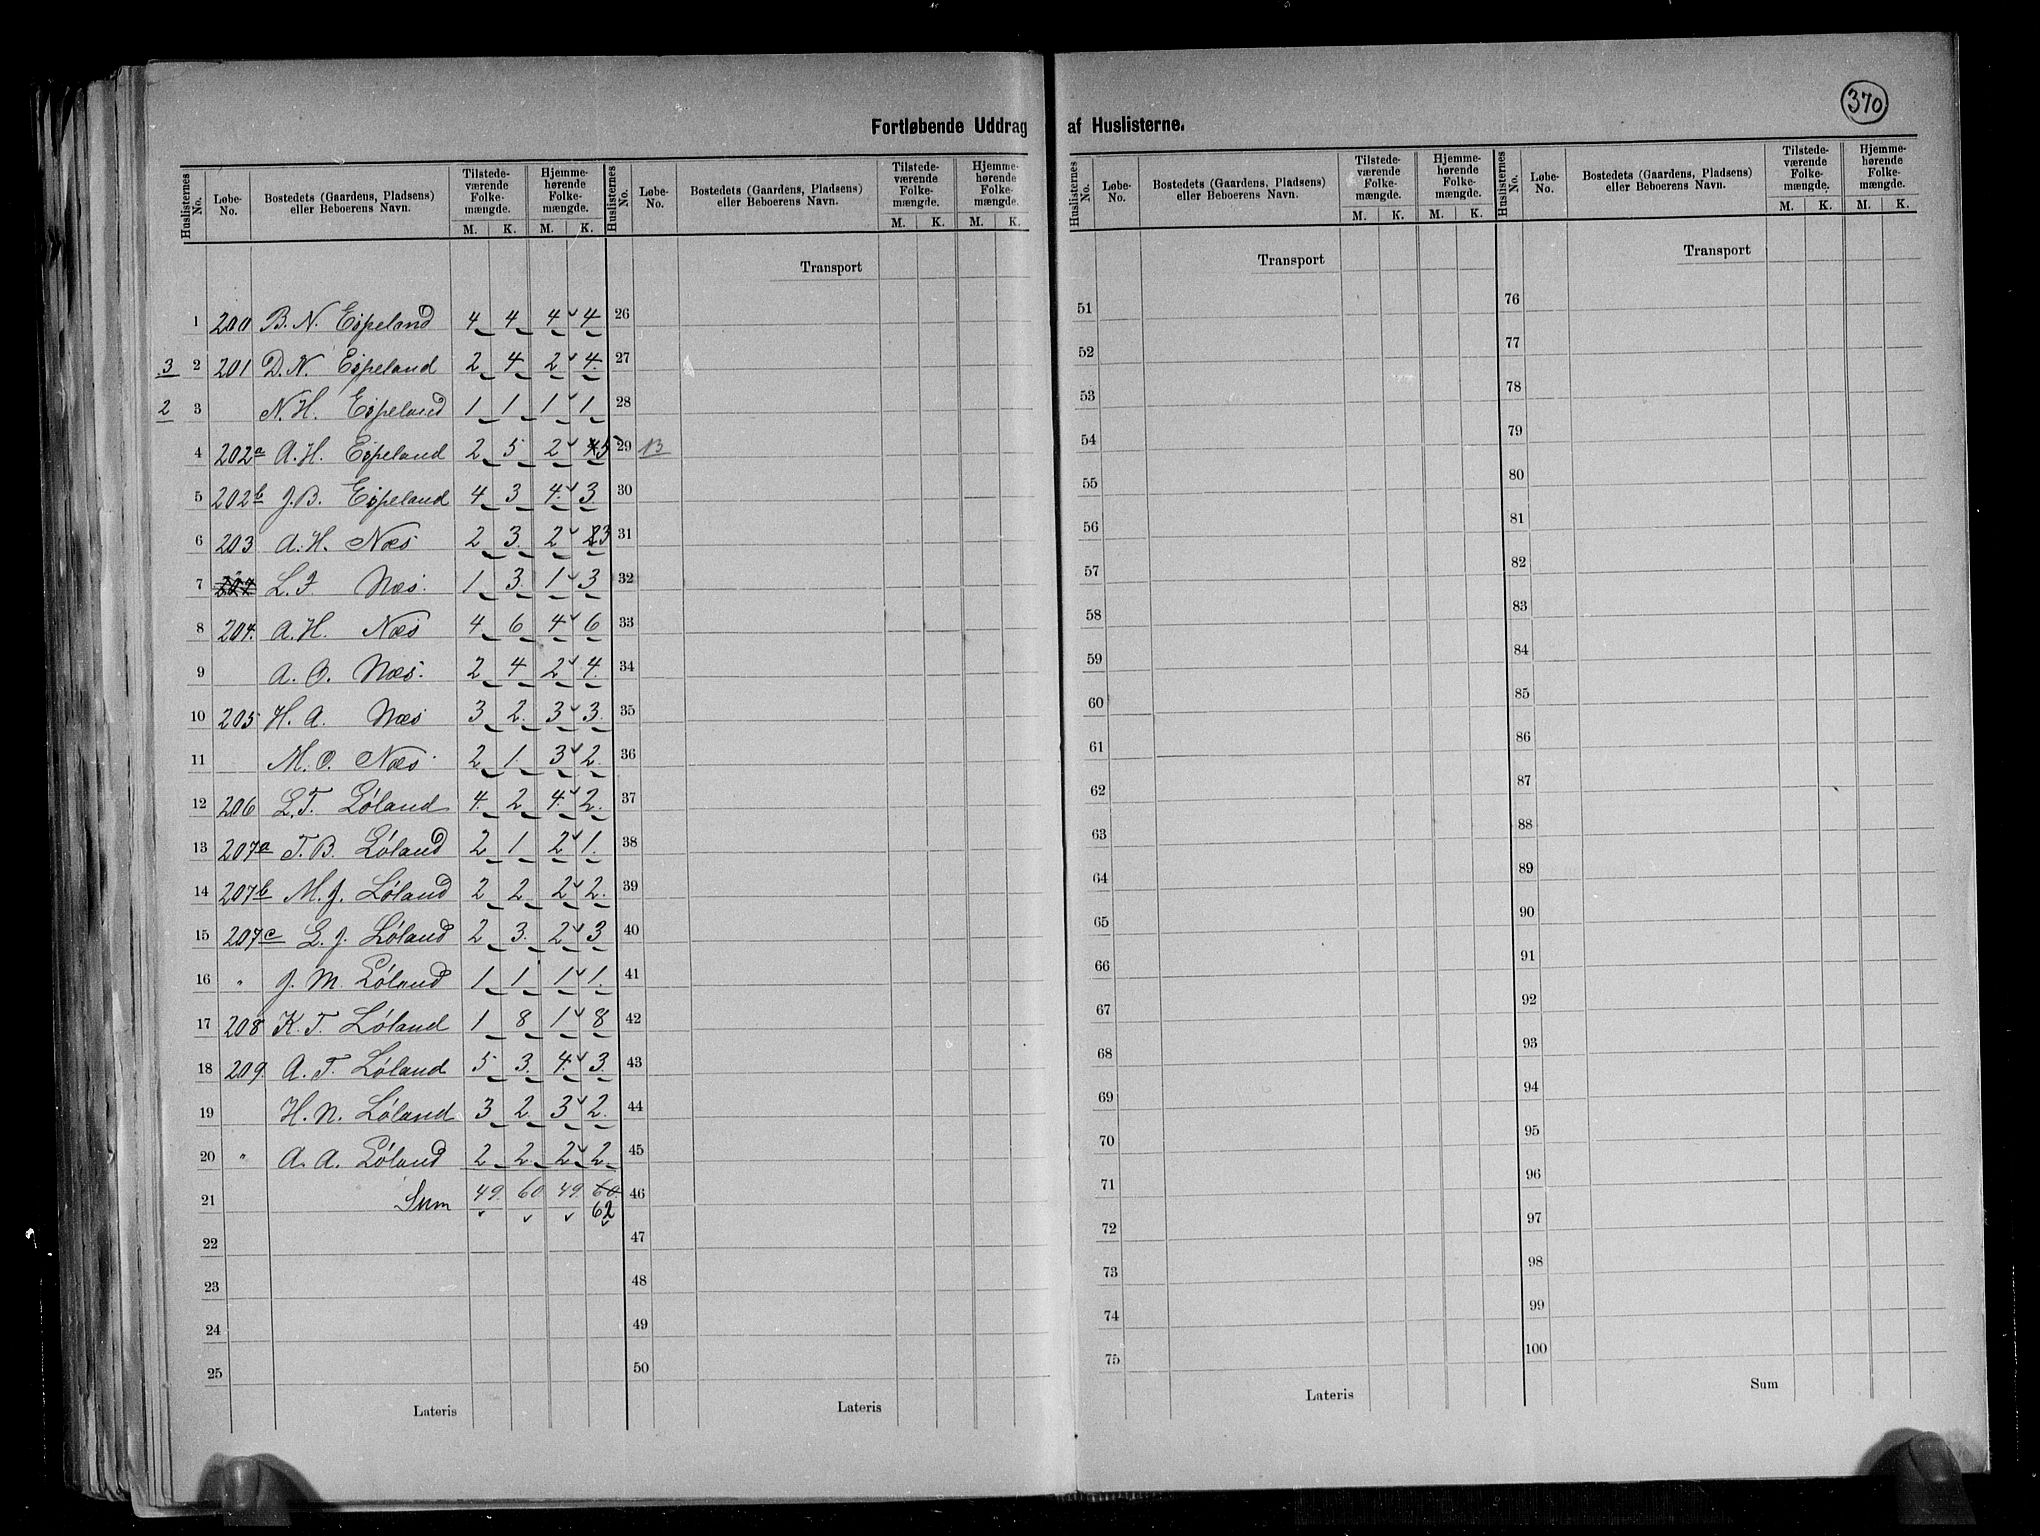 370
Fortløbende Uddrag af Huslisterne.
Huslisternes No. | Løbe-No. | Bostedets (Gaardens, Pladsens) eller Beboerens Navn. | Tilstedeværende Folkemængde. M. K. | Hjemmehørende Folkemængde. M. K.
Huslisternes No. | Løbe-No. | Bostedets (Gaardens, Pladsens) eller Beboerens Navn. | Tilstedeværende Folkemængde. M. K. | Hjemmehørende Folkemængde. M. K.
Huslisternes No. | Løbe-No. | Bostedets (Gaardens, Pladsens) eller Beboerens Navn. | Tilstedeværende Folkemængde. M. K. | Hjemmehørende Folkemængde. M. K.
Huslisternes No. | Løbe-No. | Bostedets (Gaardens, Pladsens) eller Beboerens Navn. | Tilstedeværende Folkemængde. M. K. | Hjemmehørende Folkemængde. M. K.
Transport Transport Transport
1 200 B. N. Espeland 4 4 4 4 26 51 76
3 2 201 D. N. Espeland 2 4 2 4. 27 52 77
2 3 N. H. Espeland 1 1 1 1. 28 53 78
4 202a A. H. Espeland 2 5 2 5 29 13 54 79
5 202b J. B. Espeland 4 3 4. 3. 30 55 80
6 203 A. H. Næs 2 3. 2 3 31 56 81
7 L. J. Næs. 1 3. 1 3 32 57 82
8 204. A. H. Næs 4 6 4 6 33 58 83
9 A. O. Næs. 2 4 2 4. 34 59 84
10 205 H. A. Næs 3 2. 3 3. 35 60 85
11 M. O. Næs. 2 1. 3 2. 36 61 86
12 206 L. T. Løland 4. 2 4. 2. 37 62 87
13 207a T. B. Løland 2 1 2 1. 38 63 88
14 207b M. J. Løland 2 2 2 2. 39 64 89
15 207c G. J. Løland 2 3. 2 3 40 65 90
16 " J. M. Løland 1 1 1 1. 41 66 91
17 208 K. T. Løland 1 8 1 8 42 67 92
18 209. A. T. Løland 5 3. 4. 3. 43 68 93
19 H. N. Løland 3 2. 3 2. 44 69 94
20 " A. A. Løland 2 2. 2 2 45 70 95
21 Sum 49. 60 49. 60. 46 71 96
62
22 47 72 97
23 48 73 98
24 49 74 99
25 50 75 100
Lateris Lateris Lateris Sum